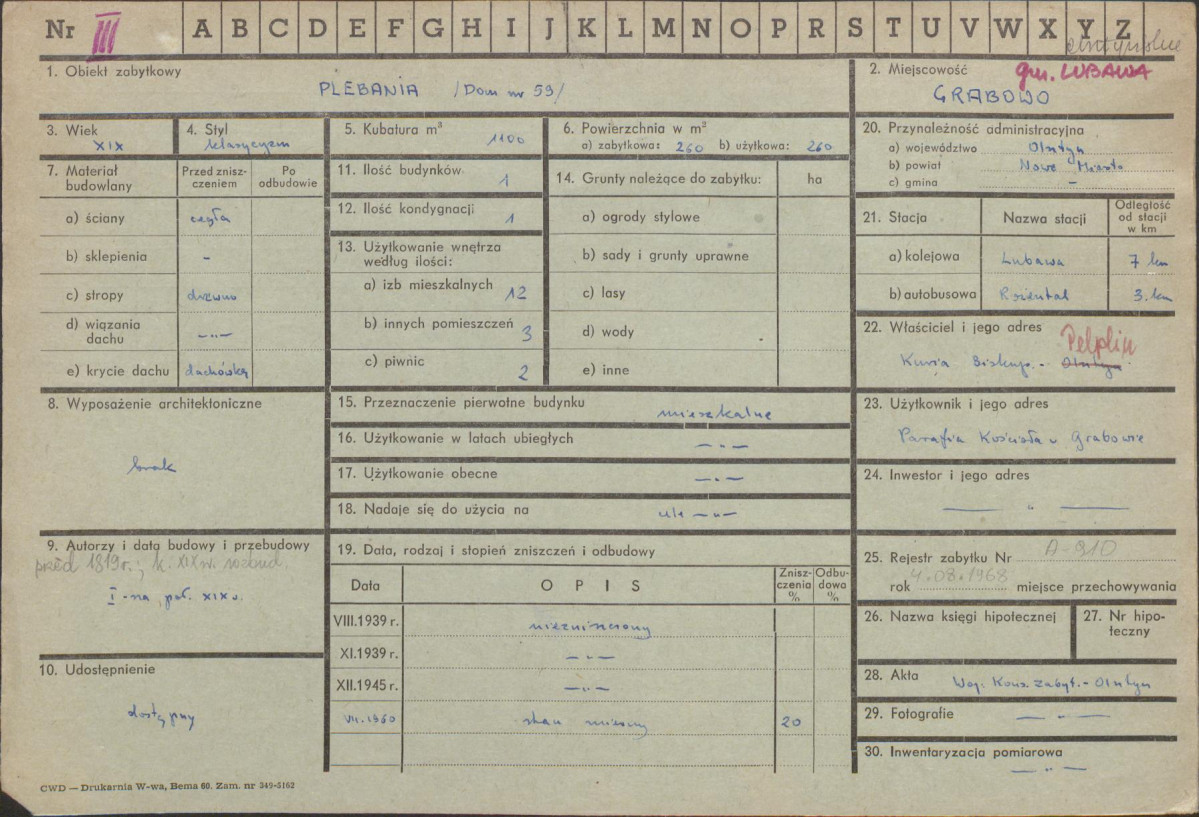 Nr III A B C D E F G H I J K L M N O P R S T U V W X Y Z
1. Obiekt zabytkowy
PLEBANIA /Dom nr 59/
2. Miejscowość gm. LUBAWA
GRABOWO
3. Wiek
XIX
4. Styl
klasycyzm
5. Kubatura m³
1100
6. Powierzchnia w m²
a) zabytkowa: 260 b) użytkowa: 260
7. Materiał budowlany
Przed zniszczeniem
Po odbudowie
a) ściany cegła
b) sklepienia -
c) stropy drewno
d) wiązania dachu -„-
e) krycie dachu dachówka
8. Wyposażenie architektoniczne
brak
9. Autorzy i data budowy i przebudowy
przed 1819 r.; k. XIX w. rozbud.
I-na poł. XIX w.
10. Udostępnienie
dostępny
11. Ilość budynków
1
12. Ilość kondygnacji
1
13. Użytkowanie wnętrza według ilości:
a) izb mieszkalnych 12
b) innych pomieszczeń 3
c) piwnic 2
14. Grunty należące do zabytku: ha
a) ogrody stylowe
b) sady i grunty uprawne
c) lasy
d) wody
e) inne
15. Przeznaczenie pierwotne budynku mieszkalne
16. Użytkowanie w latach ubiegłych -„-
17. Użytkowanie obecne -„-
18. Nadaje się do użycia na cele -„-
19. Data, rodzaj i stopień zniszczeń i odbudowy
Data OPIS Zniszczenia % Odbudowa %
VIII.1939 r. niezniszczony
XI.1939 r. -„-
XII.1945 r. -„-
VII.1960 stan 20
20. Przynależność administracyjna
a) województwo Olsztyn
b) powiat Nowe Miasto
c) gmina -
21. Stacja Nazwa stacji Odległość od stacji w km
a) kolejowa Lubawa 7 km
b) autobusowa Rozental 3 km
22. Właściciel i jego adres
Pelplin
Kuria Biskup. - Olsztyn
23. Użytkownik i jego adres
Parafia Kościoła w Grabowie
24. Inwestor i jego adres
— „ —
25. Rejestr zabytku Nr A-910
rok 4.08.1968 miejsce przechowywania
26. Nazwa księgi hipotecznej
27. Nr hipoteczny
28. Akta Woj. Kons. Zabyt. - Olsztyn
29. Fotografie -„-
30. Inwentaryzacja pomiarowa
-„-
CWD — Drukarnia W-wa, Bema 60. Zam. nr 349-5162